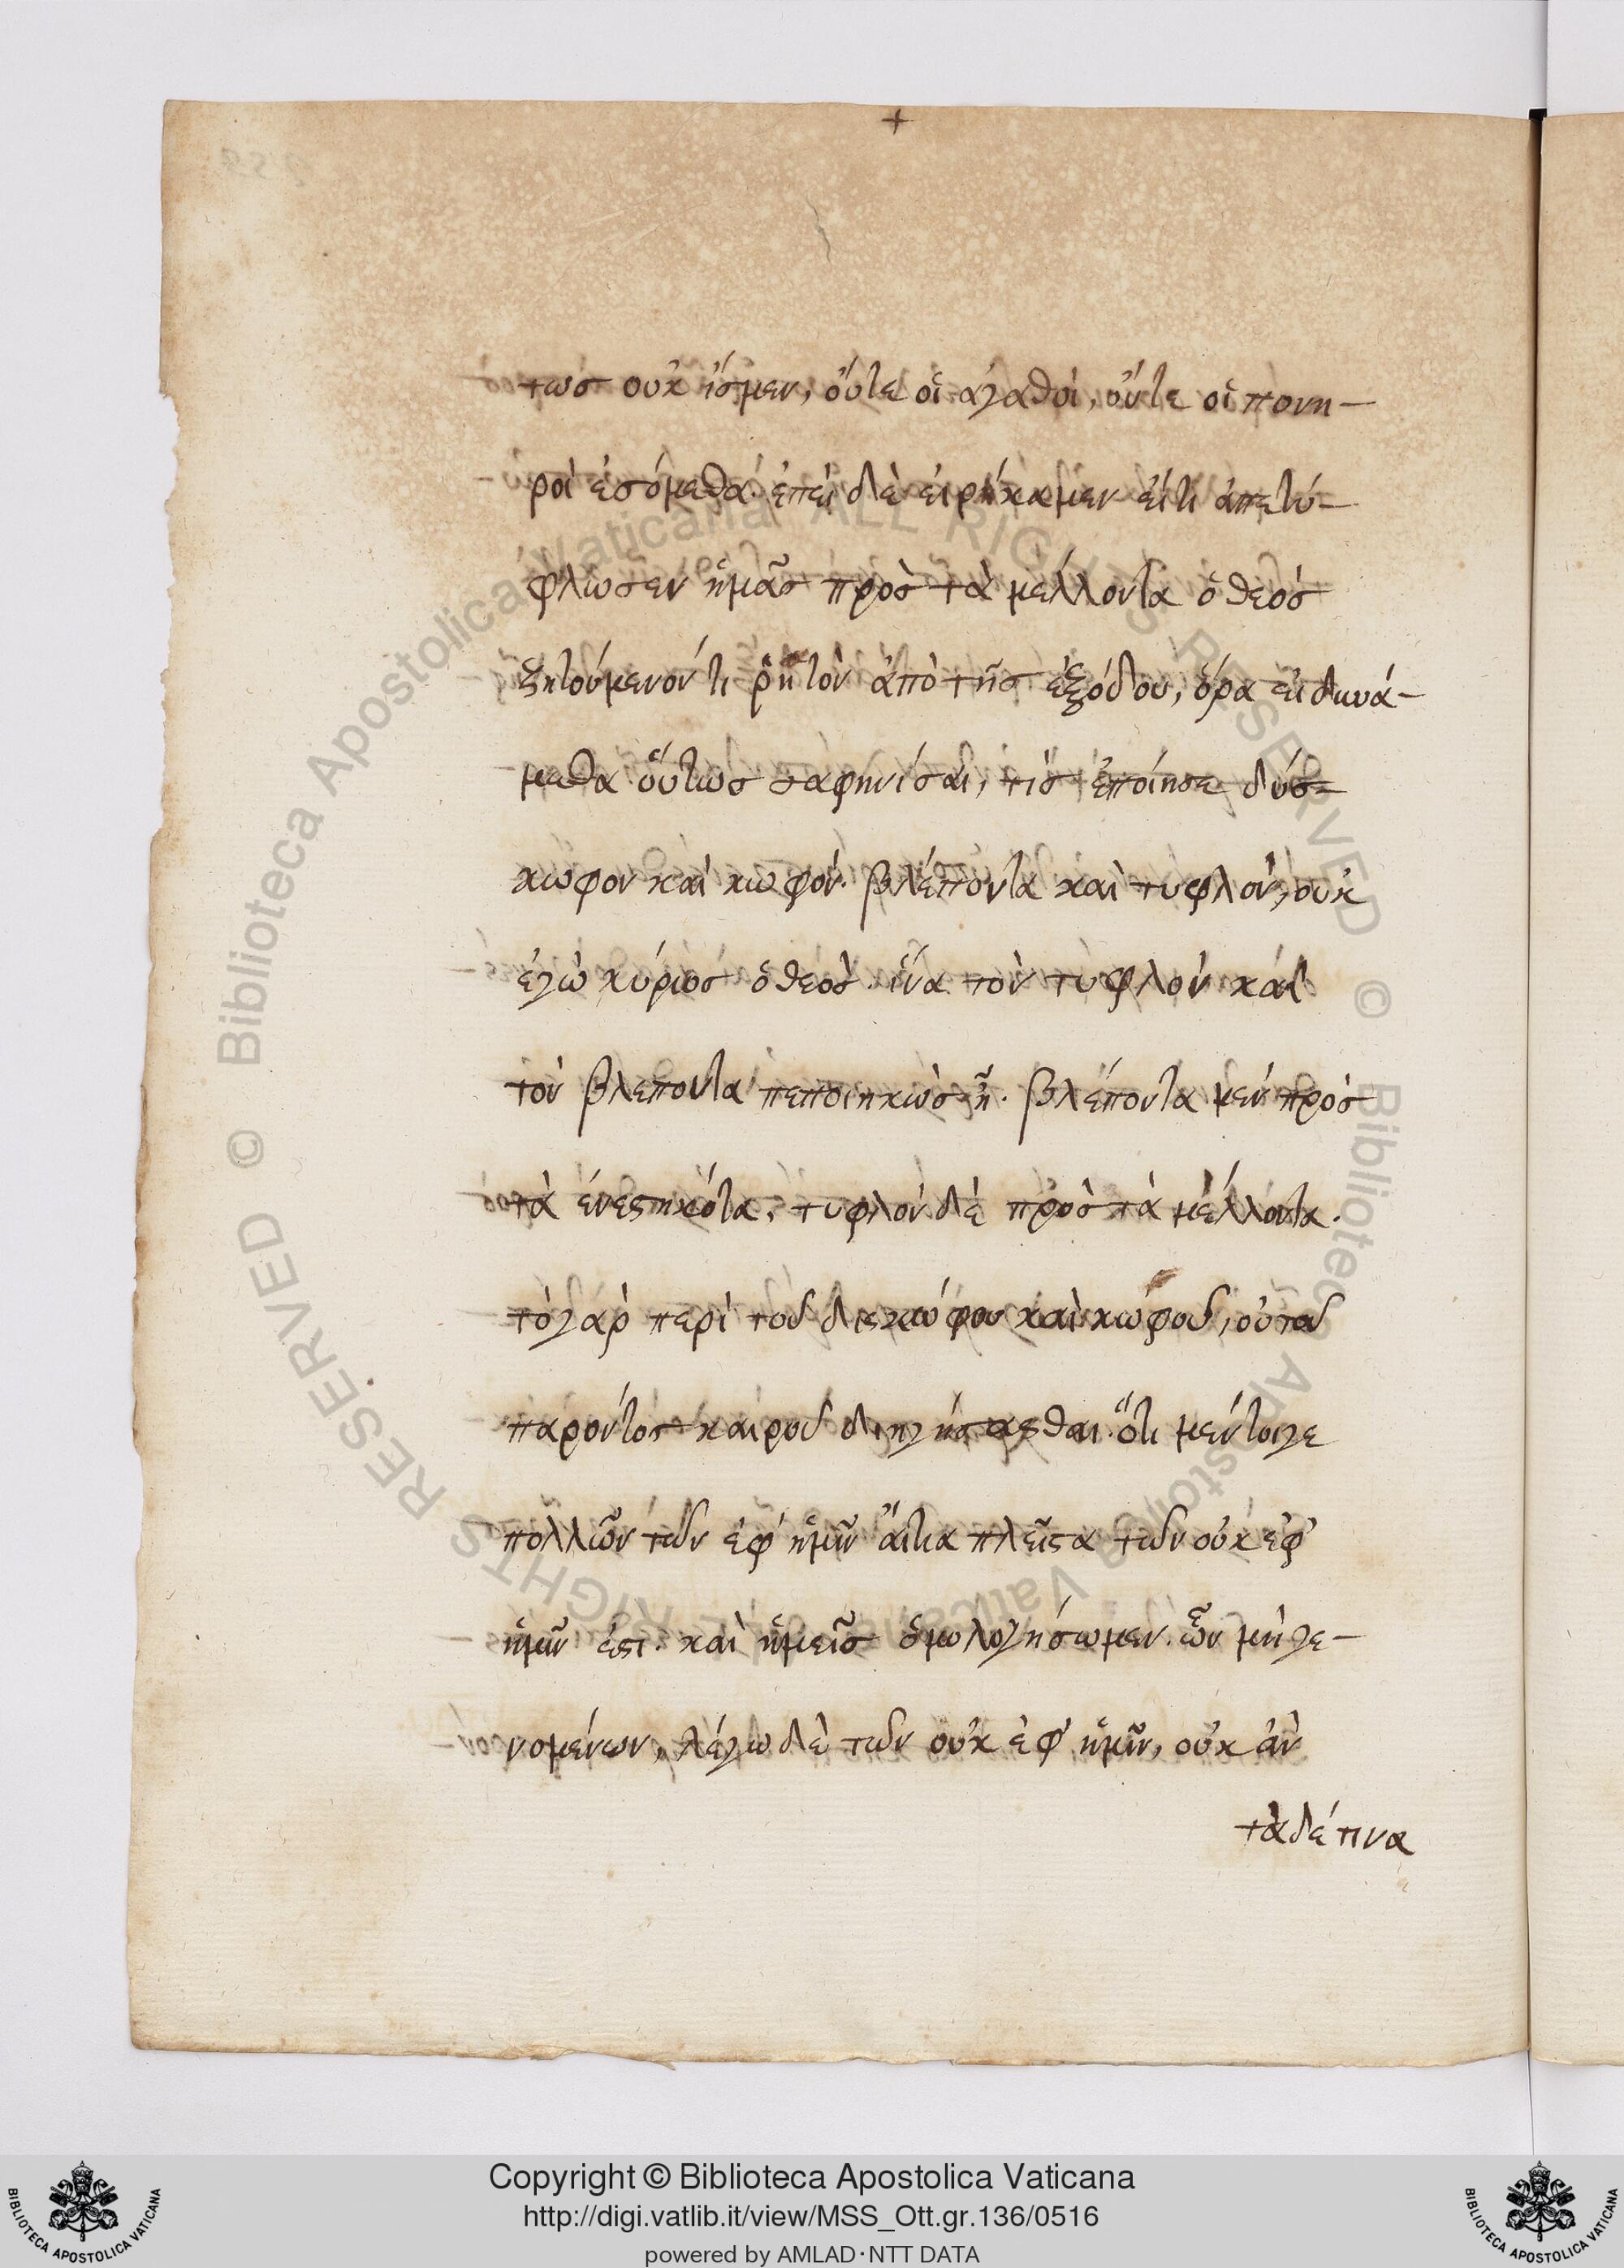 +
τως οὐκ ἴσμεν, οὔτε οἱ ἀγαθοὶ, οὔτε οἱ πονη-
ροὶ ἐσόμεθα. ἐπεὶ δὲ εἰρήκαμεν εἴτι ἀπετύ-
φλωσεν ἡμᾶς πρὸς τὰ μέλλοντα ὁ θεός
ζητούμενόν τι ῥητὸν ἀπὸ τῆς ἐξόδου, ὅρα εἰ δυνά-
μεθα οὕτως σαφηνίσαι, τίς ἐποίησε δύσ-
κωφον καὶ κωφόν. βλέποντα καὶ τυφλόν, οὐκ
ἐγὼ κύριος ὁ θεός. ἵνα τὸν τυφλὸν καὶ
τὸν βλέποντα πεποιηκὼς ᾖ. βλέποντα μὲν πρὸς
τὰ ἐνεστηκότα, τυφλὸν δὲ πρὸς τὰ μέλλοντα.
τὸ γὰρ περὶ τοῦ δυσκώφου καὶ κωφοῦ, οὐ τοῦ
παρόντος καιροῦ διηγήσασθαι. ὅτι μέντοιγε
πολλῶν τῶν ἐφ' ἡμῖν αἴτια πλεῖστα τῶν οὐκ ἐφ'
ἡμῖν ἐστι. καὶ ἡμεῖς ὁμολογήσωμεν. ὧν μὴ γε-
νομένων, λέγω δὲ τῶν οὐκ ἐφ' ἡμῖν, οὐκ ἂν
τὰ δέ τινα
Copyright © Biblioteca Apostolica Vaticana
http://digi.vatlib.it/view/MSS_Ott.gr.136/0516
powered by AMLAD·NTT DATA
BIBLIOTECA APOSTOLICA VATICANA
BIBLIOTECA APOSTOLICA VATICANA
© Biblioteca Apostolica Vaticana ALL RIGHTS RESERVED © Biblioteca Apostolica Vaticana ALL RIGHTS RESERVED